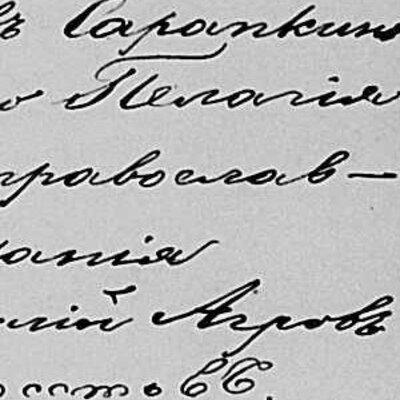 ъ Сарапкинъ
о Пелагія
православ—
анія
лій Агровъ
ость СС.